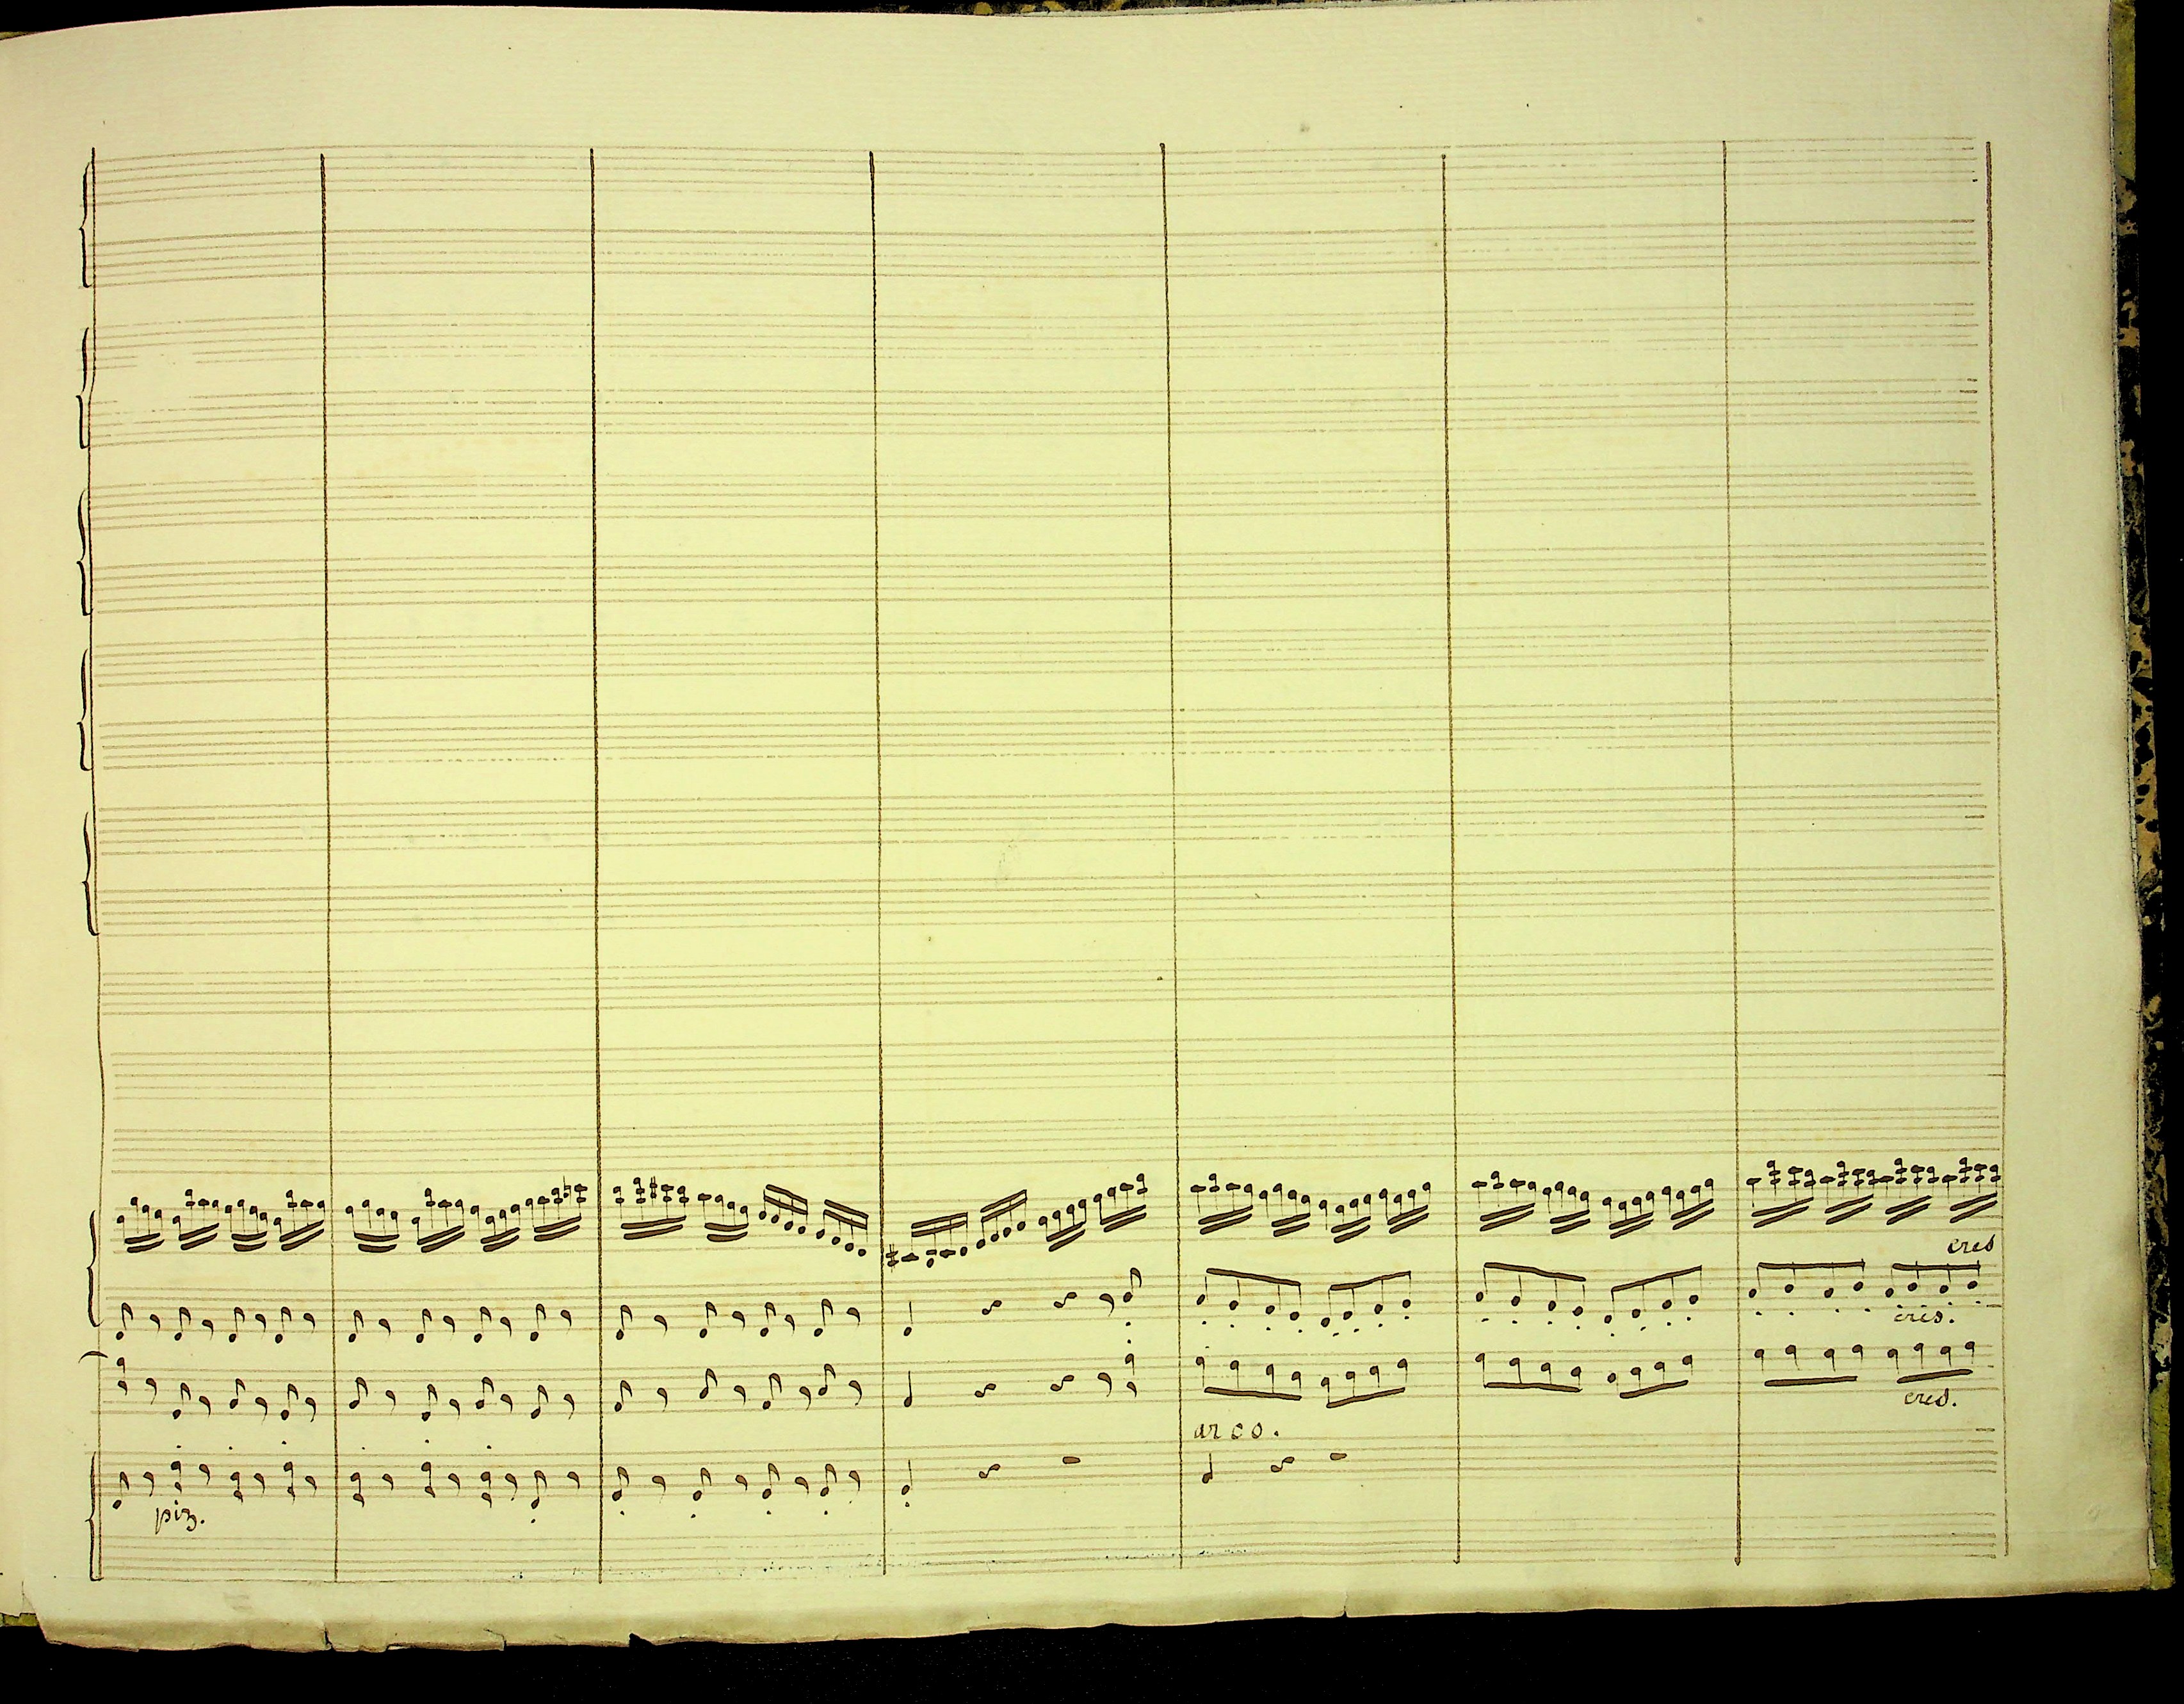 cres
cres.
cres.
arco.
piz.